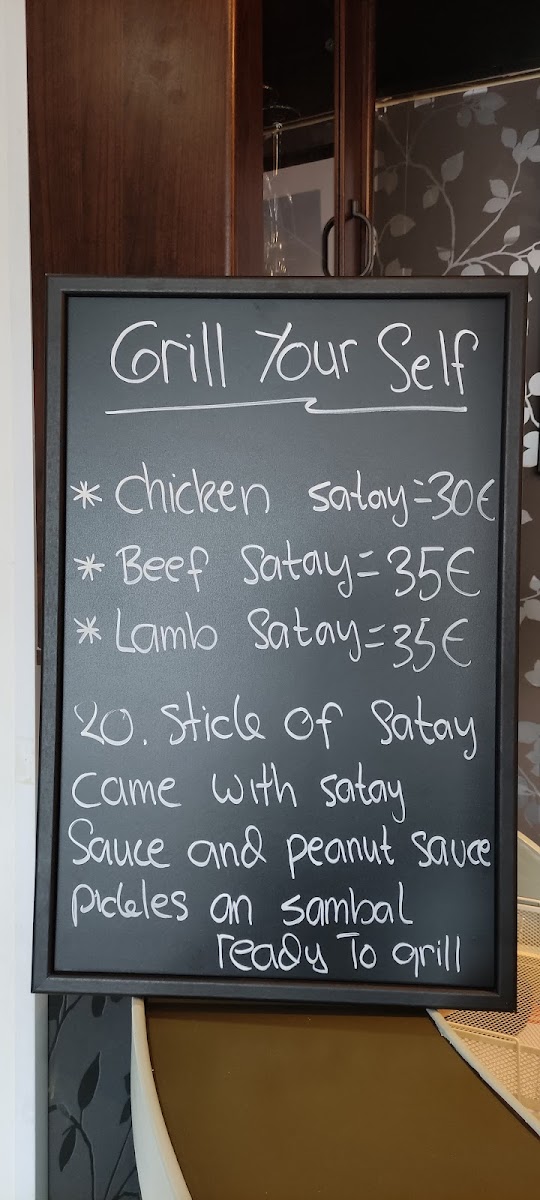 Grill Your Self
* Chicken satay=30€
* Beef Satay=35€
* Lamb Satay=35€
20. Stick Of Satay
came with satay
Sauce and peanut sauce
pickles an sambal
ready To grill